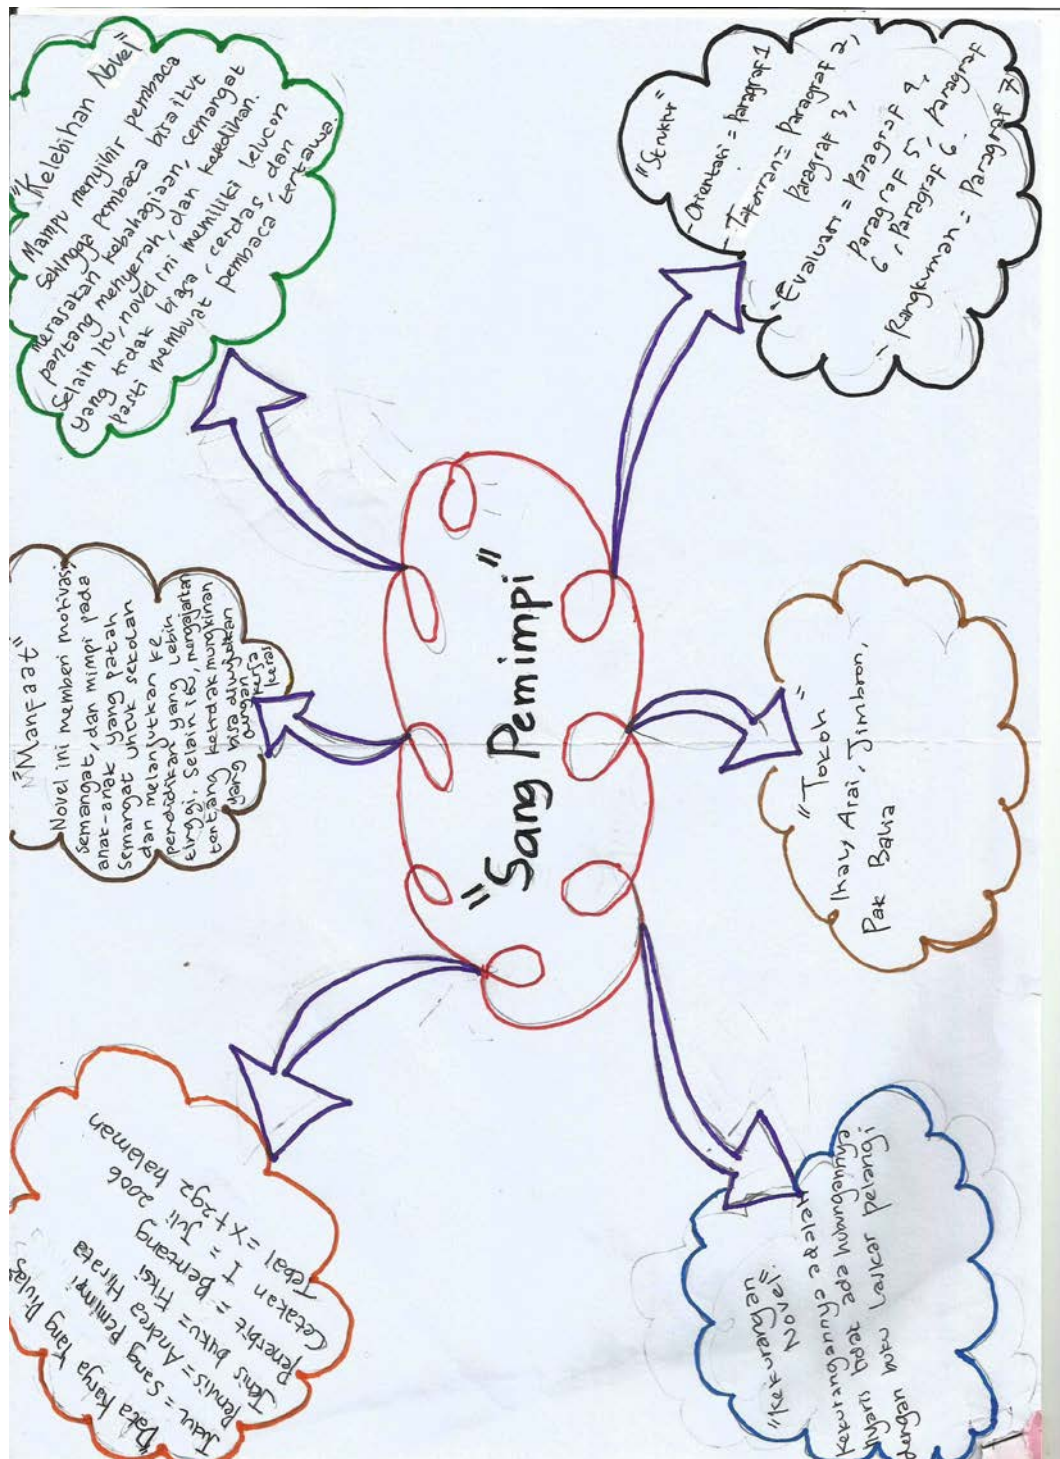 "Sang Pemimpi"
"Kelebihan Novel"
Mampu menyihir pembaca
sehingga pembaca bisa ikut
merasakan kebahagiaan, semangat
pantang menyerah, dan kesedihan.
Selain itu, novel ini memiliki lelucon
yang tidak biasa, cerdas, dan
pasti membuat pembaca tertawa.
"Struktur"
- Orientasi = Paragraf 1
- Tafsiran = Paragraf 2,
Paragraf 3,
- Evaluasi = Paragraf 4,
Paragraf 5, Paragraf
6, Paragraf 6.
- Rangkuman = Paragraf 7
"Manfaat"
Novel ini memberi motivasi,
semangat, dan mimpi pada
anak-anak yang patah
semangat untuk sekolah
dan melanjutkan ke
pendidikan yang lebih
tinggi. Selain itu, mengajarkan
tentang ketidakmungkinan
yang bisa diwujudkan
dengan
kerja
keras
"Tokoh"
Ikal, Arai, Jimbron,
Pak Balia
"Data Karya Yang Diulas"
Judul = Sang Pemimpi
Penulis = Andrea Hirata
Jenis buku = Fiksi
Penerbit = Bentang
Cetakan I = Juli 2006
Tebal = X + 292 halaman
"Kekurangan
Novel"
Kekurangannya adalah
hampir tidak ada hubungannya
dengan buku Laskar Pelangi